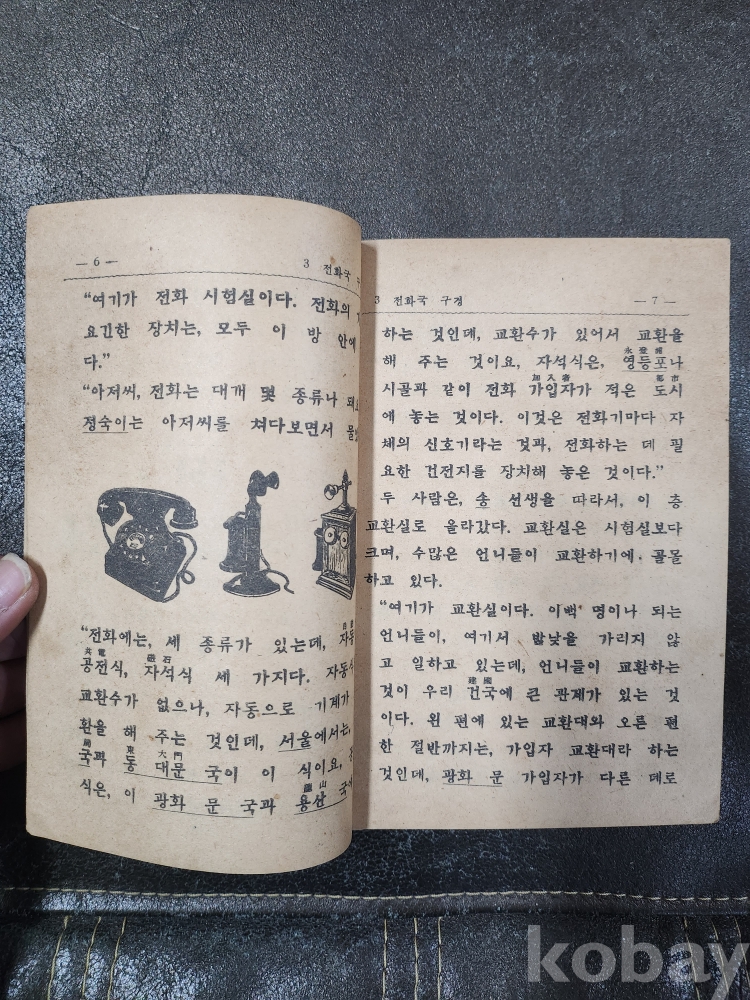 — 6 —
3 전화국 구
“여기가 전화 시험실이다. 전화의
요긴한 장치는, 모두 이 방 안에
다.”
“아저씨, 전화는 대개 몇 종류나 돼요
정숙이는 아저씨를 쳐다보면서 물
“전화에는, 세 종류가 있는데, 자동
共電 磁石
공전식, 자석식 세 가지다. 자동식
교환수가 없으나, 자동으로 기계가
환을 해 주는 것인데, 서울에서는,
局 東 大門
국과 동 대문 국이 이 식이요,
龍山
식은, 이 광화 문 국과 용산 국
3 전화국 구경
— 7 —
하는 것인데, 교환수가 있어서 교환을
永登浦
해 주는 것이요, 자석식은, 영등포나
加入者 都市
시골과 같이 전화 가입자가 적은 도시
에 놓는 것이다. 이것은 전화기마다 자
체의 신호기라는 것과, 전화하는 데 필
요한 건전지를 장치해 놓은 것이다.”
두 사람은, 송 선생을 따라서, 이 층
교환실로 올라갔다. 교환실은 시험실보다
크며, 수많은 언니들이 교환하기에 골몰
하고 있다.
“여기가 교환실이다. 이백 명이나 되는
언니들이, 여기서 밤낮을 가리지 않
고 일하고 있는데, 언니들이 교환하는
建國
것이 우리 건국에 큰 관계가 있는 것
이다. 왼 편에 있는 교환대와 오른 편
한 절반까지는, 가입자 교환대라 하는
것인데, 광화 문 가입자가 다른 데로
kobay